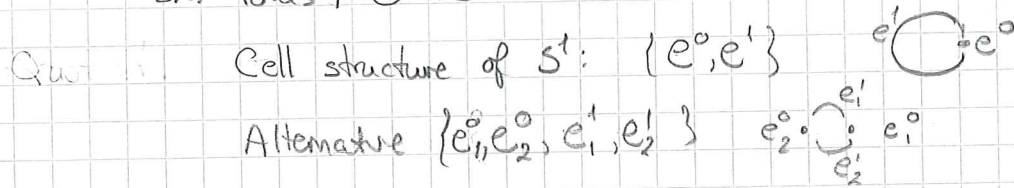 Cell structure of S¹: {e⁰, e¹} e¹ e⁰
Alternative {e₁⁰, e₂⁰, e₁¹, e₂¹} e₂⁰ e₁¹ e₂¹ e₁⁰